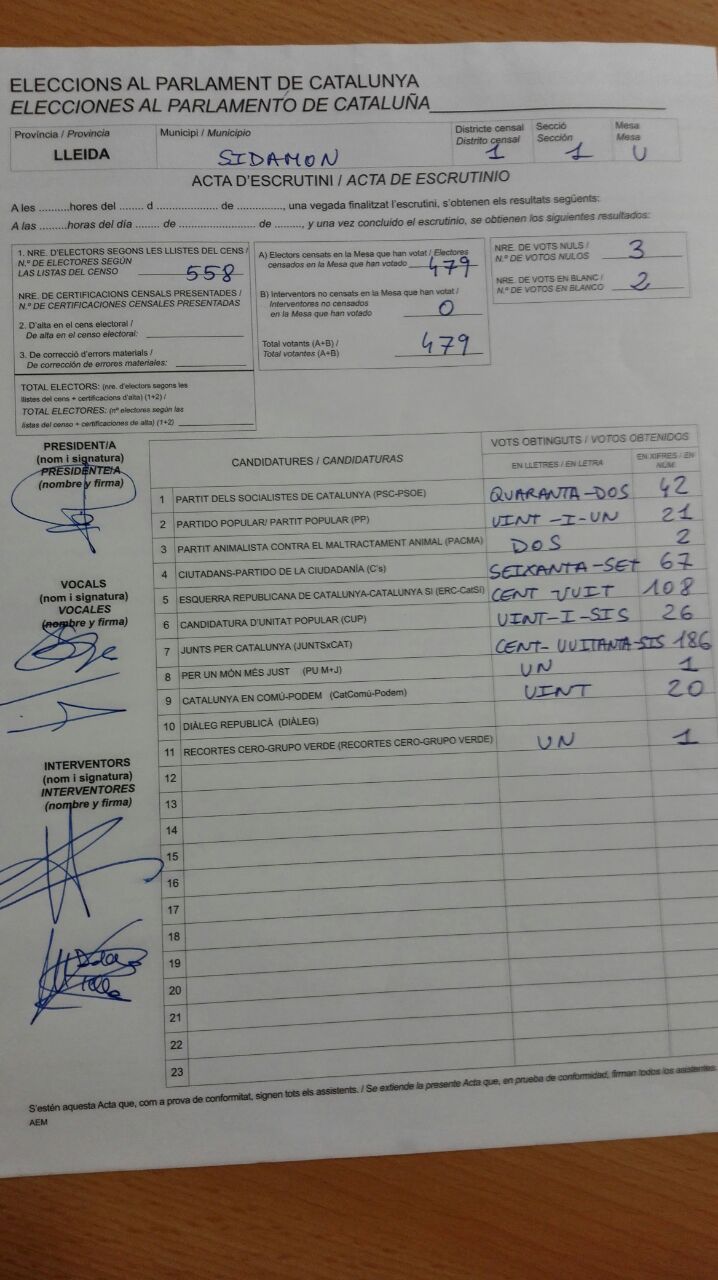 ELECCIONS AL PARLAMENT DE CATALUNYA
ELECCIONES AL PARLAMENTO DE CATALUÑA
Província / Provincia
LLEIDA
Municipi / Municipio
SIDAMON
Districte censal
Distrito censal
1
Secció
Sección
1
Mesa
Mesa
U
ACTA D'ESCRUTINI / ACTA DE ESCRUTINIO
A les ..........hores del ........ d ..................... de ............, una vegada finalitzat l'escrutini, s'obtenen els resultats següents:
A las ..........horas del día ........ de ..................... de ............, y una vez concluido el escrutinio, se obtienen los siguientes resultados:
1. NRE. D'ELECTORS SEGONS LES LLISTES DEL CENS /
N.º DE ELECTORES SEGÚN
LAS LISTAS DEL CENSO 558
NRE. DE CERTIFICACIONS CENSALS PRESENTADES /
N.º DE CERTIFICACIONES CENSALES PRESENTADAS
2. D'alta en el cens electoral /
De alta en el censo electoral:
3. De correcció d'errors materials /
De corrección de errores materiales:
TOTAL ELECTORS: (nre. d'electors segons les
llistes del cens + certificacions d'alta) (1+2) /
TOTAL ELECTORES: (nº electores según las
listas del censo + certificaciones de alta) (1+2)
A) Electors censats en la Mesa que han votat / Electores
censados en la Mesa que han votado 479
B) Interventors no censats en la Mesa que han votat /
Interventores no censados
en la Mesa que han votado 0
Total votants (A+B) /
Total votantes (A+B) 479
NRE. DE VOTS NULS /
N.º DE VOTOS NULOS 3
NRE. DE VOTS EN BLANC /
N.º DE VOTOS EN BLANCO 2
PRESIDENT/A
(nom i signatura)
PRESIDENTE/A
(nombre y firma)
VOCALS
(nom i signatura)
VOCALES
(nombre y firma)
INTERVENTORS
(nom i signatura)
INTERVENTORES
(nombre y firma)
CANDIDATURES / CANDIDATURAS
VOTS OBTINGUTS / VOTOS OBTENIDOS
EN LLETRES / EN LETRA
EN XIFRES / EN
NÚM.
1 PARTIT DELS SOCIALISTES DE CATALUNYA (PSC-PSOE) QUARANTA-DOS 42
2 PARTIDO POPULAR/ PARTIT POPULAR (PP) VINT-I-UN 21
3 PARTIT ANIMALISTA CONTRA EL MALTRACTAMENT ANIMAL (PACMA) DOS 2
4 CIUTADANS-PARTIDO DE LA CIUDADANÍA (C's) SEIXANTA-SET 67
5 ESQUERRA REPUBLICANA DE CATALUNYA-CATALUNYA SÍ (ERC-CatSí) CENT VUIT 108
6 CANDIDATURA D'UNITAT POPULAR (CUP) VINT-I-SIS 26
7 JUNTS PER CATALUNYA (JUNTSxCAT) CENT-VUITANTA-SIS 186
8 PER UN MÓN MÉS JUST (PU M+J) UN 1
9 CATALUNYA EN COMÚ-PODEM (CatComú-Podem) VINT 20
10 DIÀLEG REPUBLICÀ (DIÀLEG)
11 RECORTES CERO-GRUPO VERDE (RECORTES CERO-GRUPO VERDE) UN 1
12
13
14
15
16
17
18
19
20
21
22
23
S'estén aquesta Acta que, com a prova de conformitat, signen tots els assistents. / Se extiende la presente Acta que, en prueba de conformidad, firman todos los asistentes.
AEM